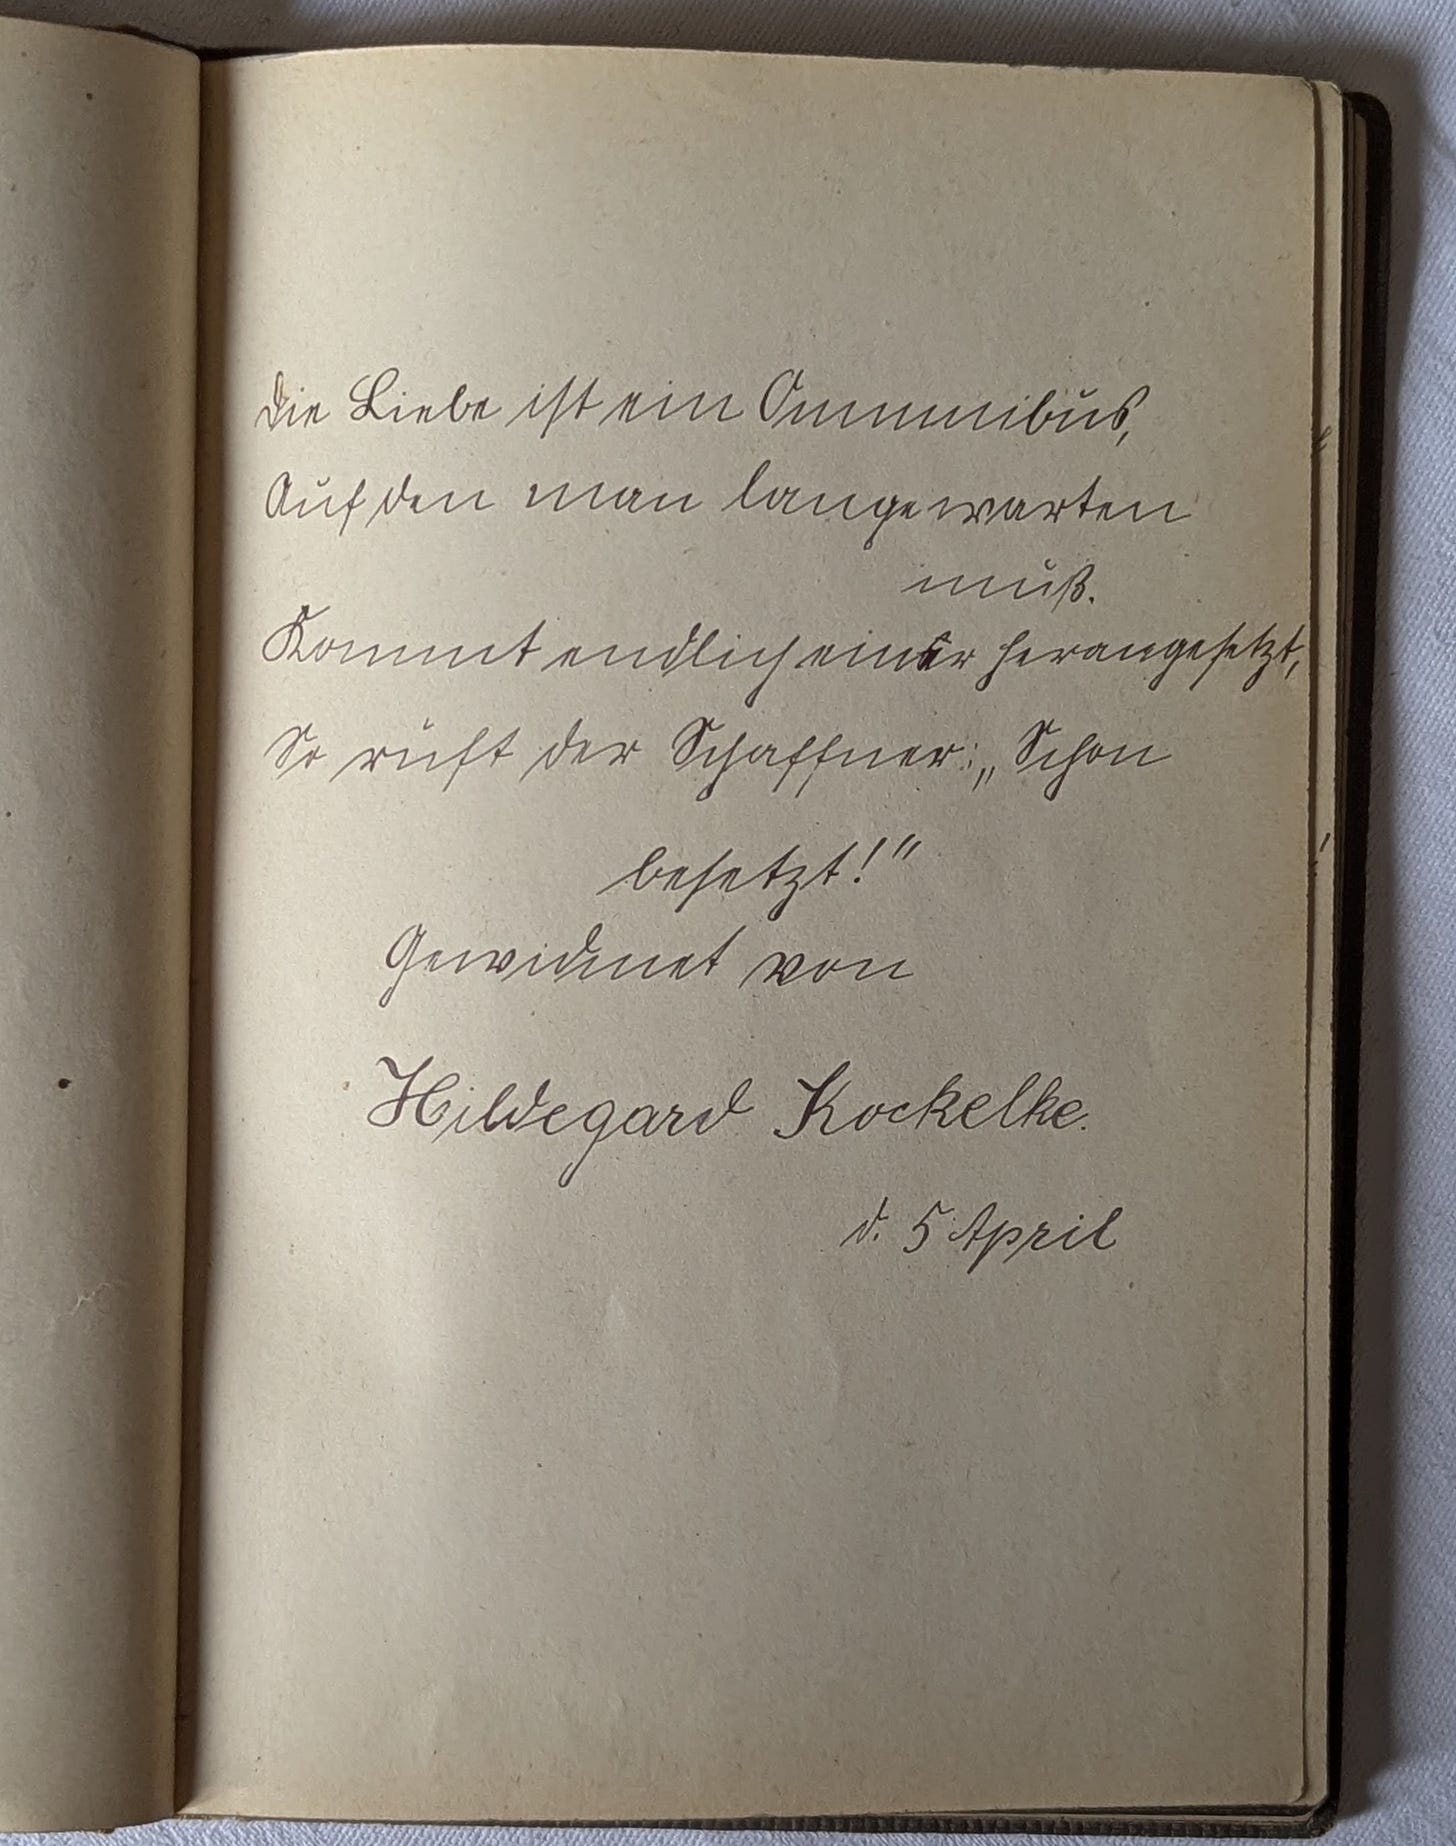 Die Liebe ist ein Ommnibus,
Auf den man lange warten
muß.
Kommt endlich einer herangesetzt,
So ruft der Schaffner: „Schon
besetzt!“
Gewidmet von
Hildegard Kockelke.
d. 5 April